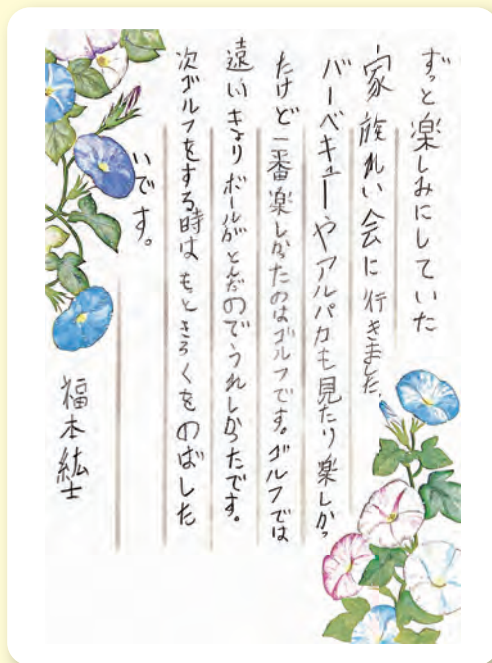 ずっと楽しみにしていた
家族れい会に行きました。
バーベキューやアルパカも見たり楽しかっ
たけど一番楽しかったのはゴルフです。ゴルフでは
遠いきょりボールがとんだのでうれしかったです。
次ゴルフをする時はもときろくをのばした
いです。
福本紘士